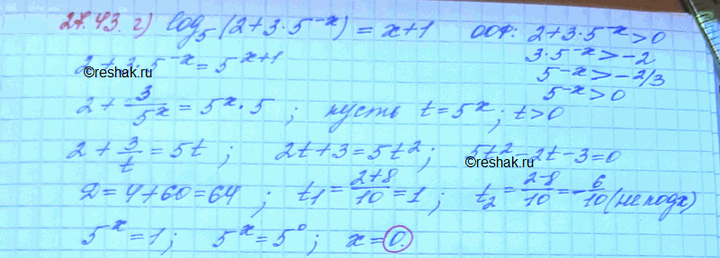 27.43. г) log₅(2+3·5⁻ˣ) = x+1   ООФ: 2+3·5⁻ˣ>0
2+3·5⁻ˣ=5ˣ⁺¹   3·5⁻ˣ>-2
©reshak.ru   5⁻ˣ>-2/3
5⁻ˣ>0
2+3/5ˣ=5ˣ·5 ; пусть t=5ˣ; t>0
2+3/t=5t ; 2t+3=5t² ; 5t²-2t-3=0
©reshak.ru
D=4+60=64 ; t₁=(2+8)/10=1 ; t₂=(2-8)/10=-6/10 (не подх)
5ˣ=1 ; 5ˣ=5⁰ ; x=0.